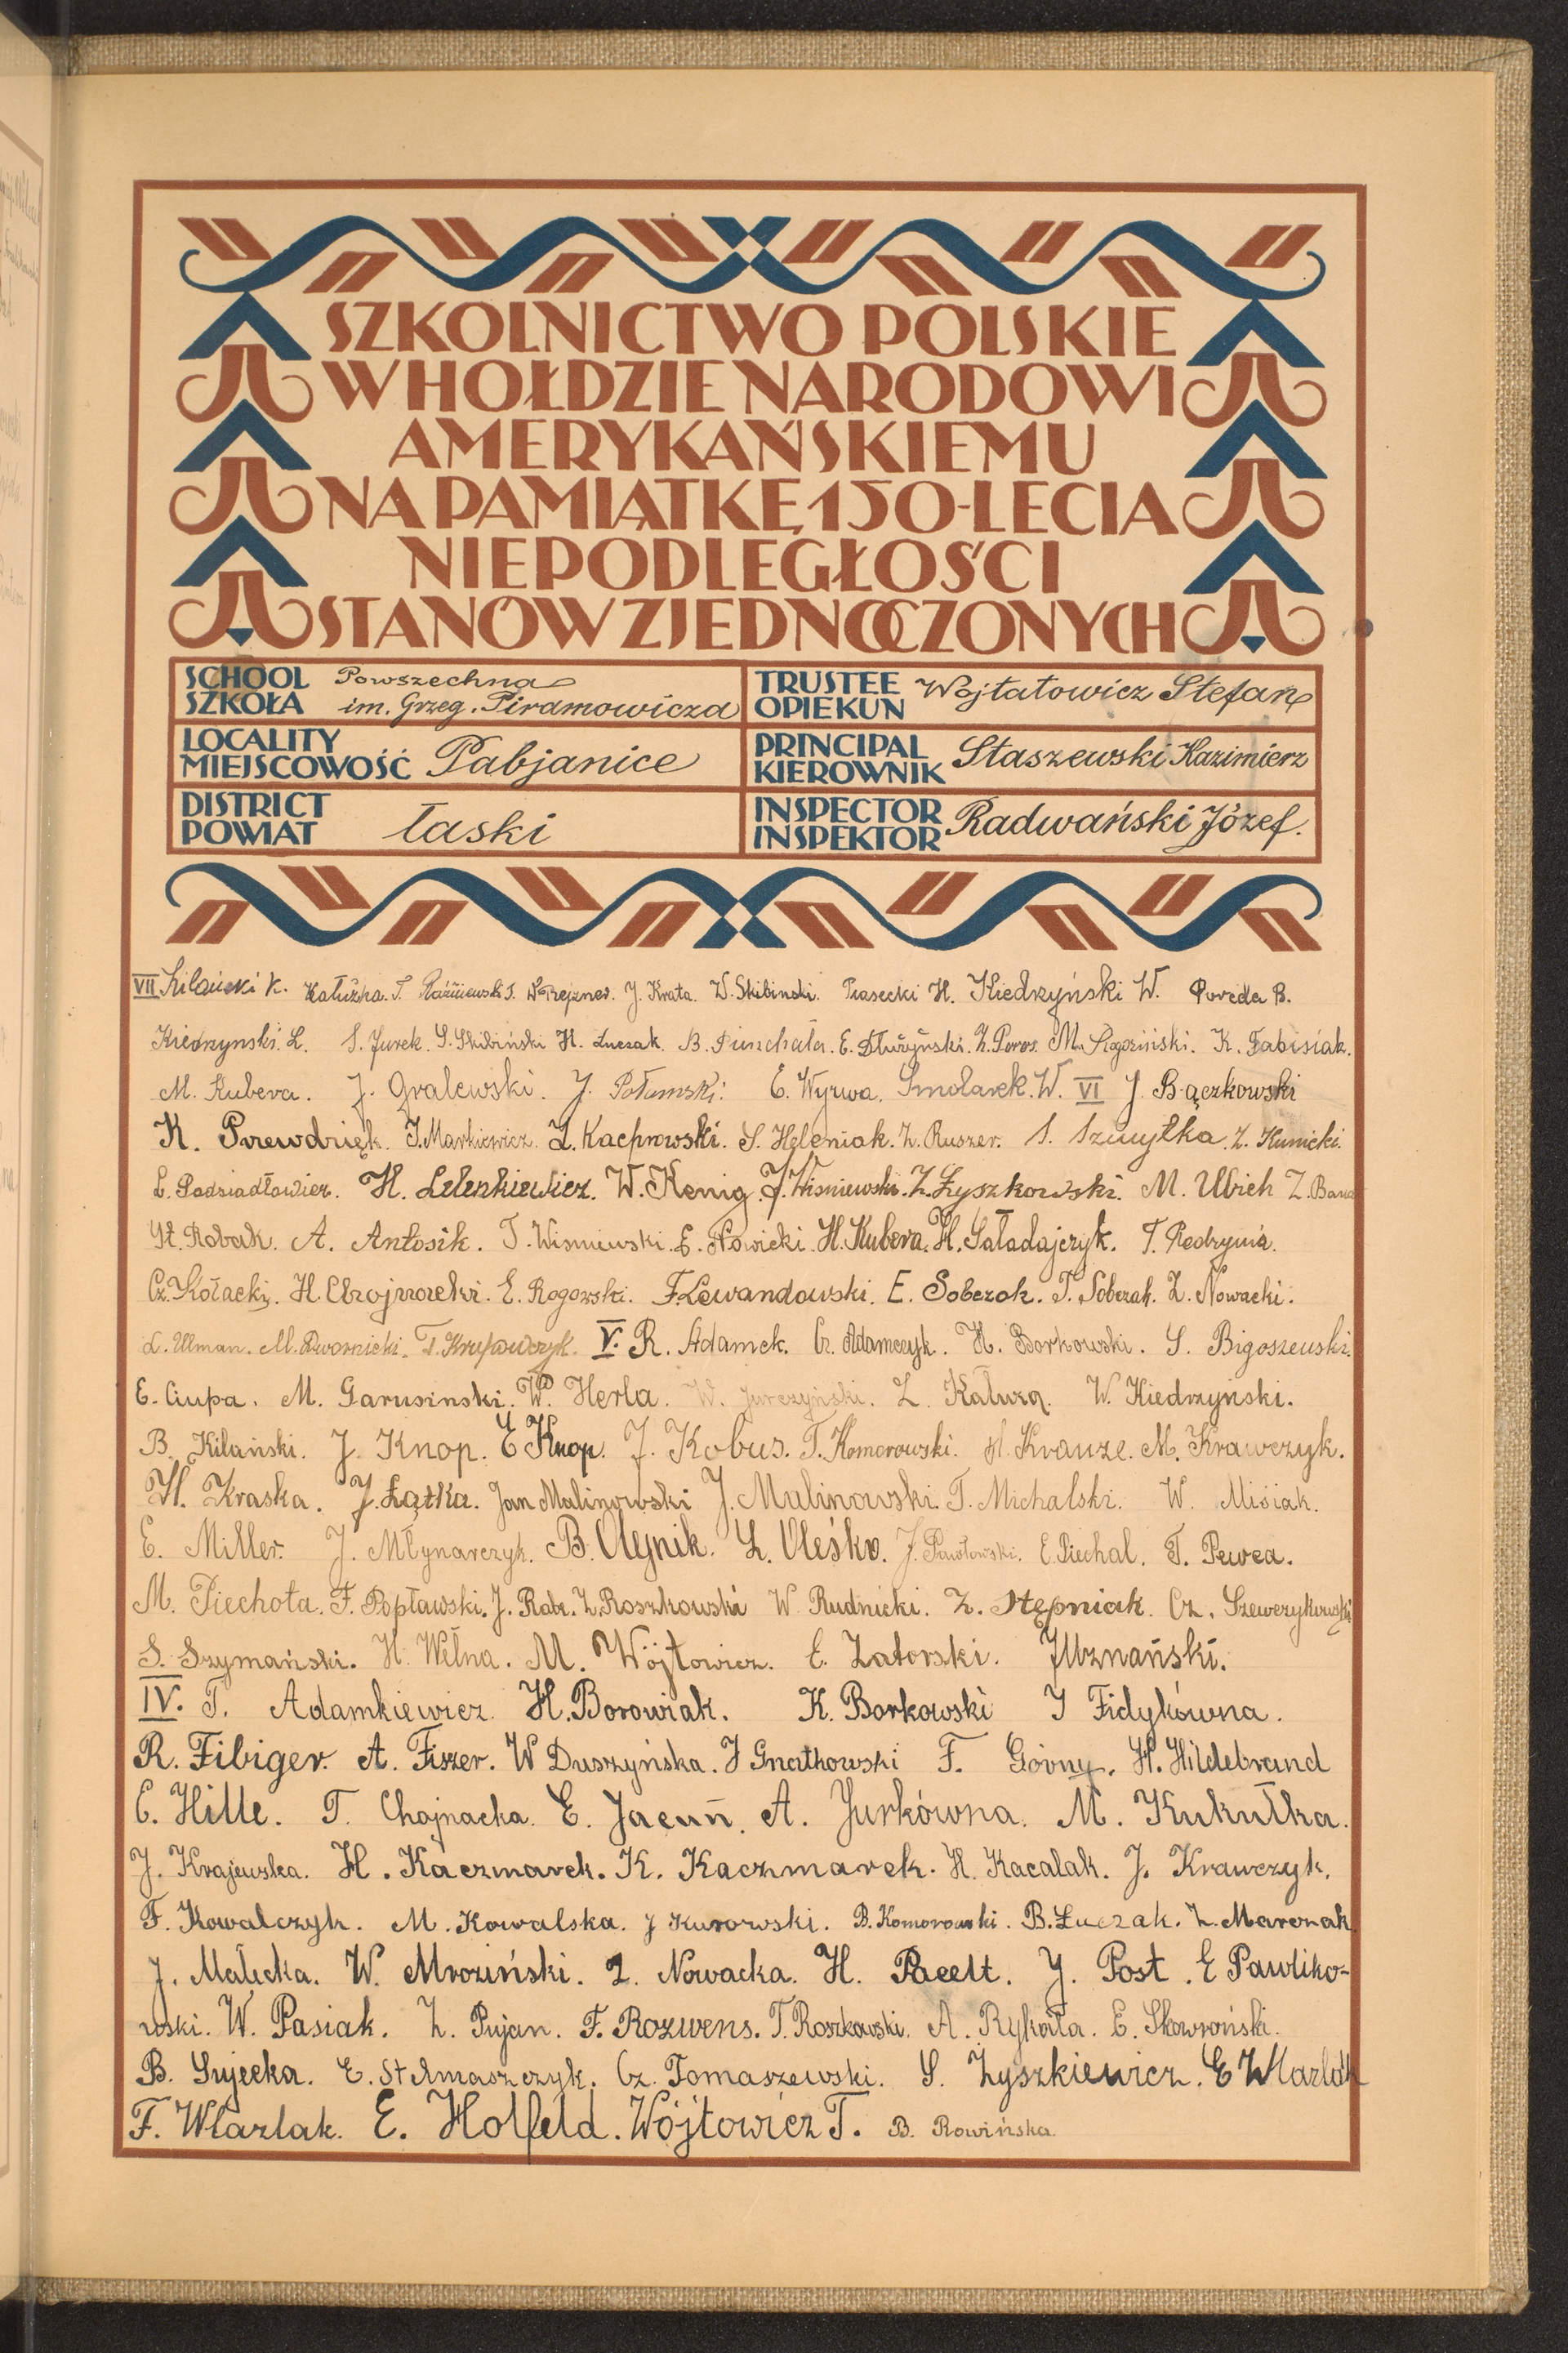 SZKOLNICTWO POLSKIE
W HOŁDZIE NARODOWI
AMERYKAŃSKIEMU
NA PAMIĄTKĘ 150-LECIA
NIEPODLEGŁOŚCI
STANÓW ZJEDNOCZONYCH
SCHOOL SZKOŁA Powszechna im. Grzeg. Piramowicza
TRUSTEE OPIEKUN Wojtatowicz Stefan
LOCALITY MIEJSCOWOŚĆ Pabjanice
PRINCIPAL KIEROWNIK Staszewski Kazimierz
DISTRICT POWIAT Łaski
INSPECTOR INSPEKTOR Radwański Józef.
VII Kilański K. Kałużka. T. J. Krata. W. Skibinski. Piasecki H. Kiedrzyński W. Poreda B.
Kiedrzynski. L. S. Jurek. S. Skibiński H. Łuczak. B. E. Dłużyński. Z. Poros. M. Rogoziński. K. Fabisiak.
M. Kubera. J. Gralewski. J. Potumski. E. Wyrwa. Smolarek. W. VI J. Bączkowski
K. Przewdzięk. J. Markiewicz. Z. Kacprowski. S. Heleniak. Z. Ruszer. S. Szmytka. Z. Kunicki.
L. Podsiadłowicz. H. Lelenkiewicz. W. Kenig. J. Wiśniewski. Z. Łyszkowski. M. Ulrich Z.
St. Robak. A. Antosik. T. Wisniewski. E. Nowicki. H. Kubera. H. Saładajczyk. T.
Cz. Kołacki. H. E. Rogowski. F. Lewandowski. E. Sobczak. T. Sobczak. Z. Nowacki.
L. Ulman. M. Dwornicki. T. Krupowczyk. V. R. Adamek. Cz. Adamczyk. H. Borkowski. S. Bigoszewski.
E. Ciupa. M. Garusinski. W. Herla. W. Jurczyński. Z. Kałuza. W. Kiedrzyński.
B. Kilański. J. Knop. E Knop. J. Kobus. T. Komorowski. H. Krauze. M. Krawczyk.
H. Kraska. J. Łątka. Jan Malinowski J. Mulinowski. T. Michalski. W. Misiak.
E. Miller. J. Młynarczyk. B. Olejnik. Z. Oleśko. J. Pawłowski. E. Piechal. T. Pewca.
M. Piechota. F. Popławski. J. Rabe. Z. Roszkowski W. Rudnicki. Z. Stępniak. Cz. Szewczykowski
S. Szymański. H. Wełna. M. Wójtowicz. E. Zatorski. J Uznański.
IV. T. Adamkiewicz. H. Borowiak. K. Borkowski J Fidykówna.
R. Fibiger. A. Fiszer. W Duszyńska. J Gnatkowski F. Górny. H. Hildebrand
E. Hille. T. Chojnacka. E. Jacuń. A. Jurkówna. M. Kukułka.
J. Krajewska. H. Kaczmarek. K. Kaczmarek. H. Kacalak. J. Krawczyk.
F. Kowalczyk. M. Kowalska. J Kurowski. B. Komorowski. B. Łuczak. Z. Marczak
J. Malicka. W. Mroziński. Z. Nowacka. H. Pacelt. J. Post. E Pawliko-
wski. W. Pasiak. Z. Pujan. F. Rozwens. T. Roszkowski. A. Rykała. E. Skowroński.
B. Sujecka. E. Stdmaszczyk. Cz. Tomaszewski. S. Zyszkiewicz. E Wlazlak
F. Wlazlak. E. Holfeld. Wójtowicz T. B. Rowińska.